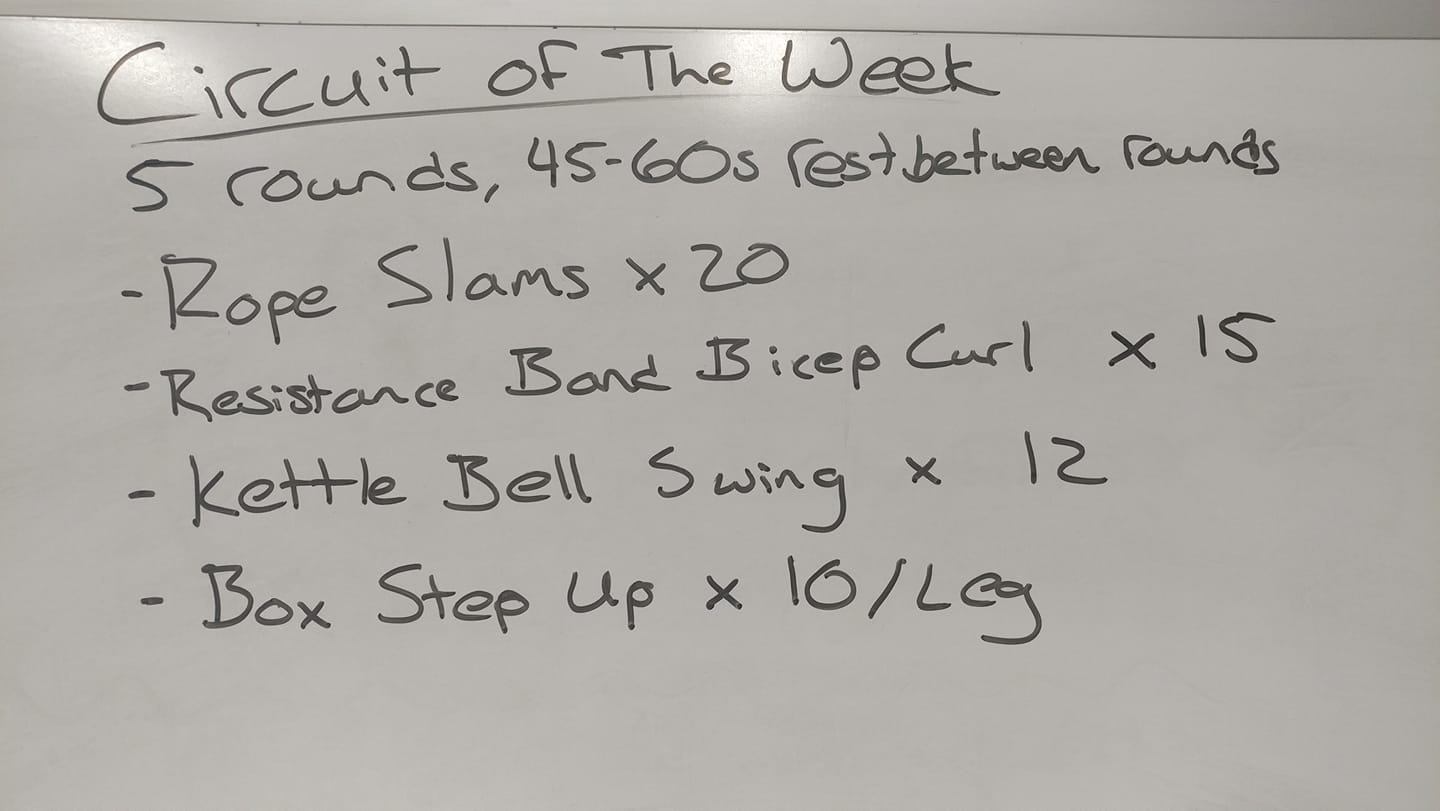 Circuit of The Week
5 rounds, 45-60s rest between rounds
- Rope Slams x 20
- Resistance Band Bicep Curl x 15
- Kettle Bell Swing x 12
- Box Step Up x 10/Leg